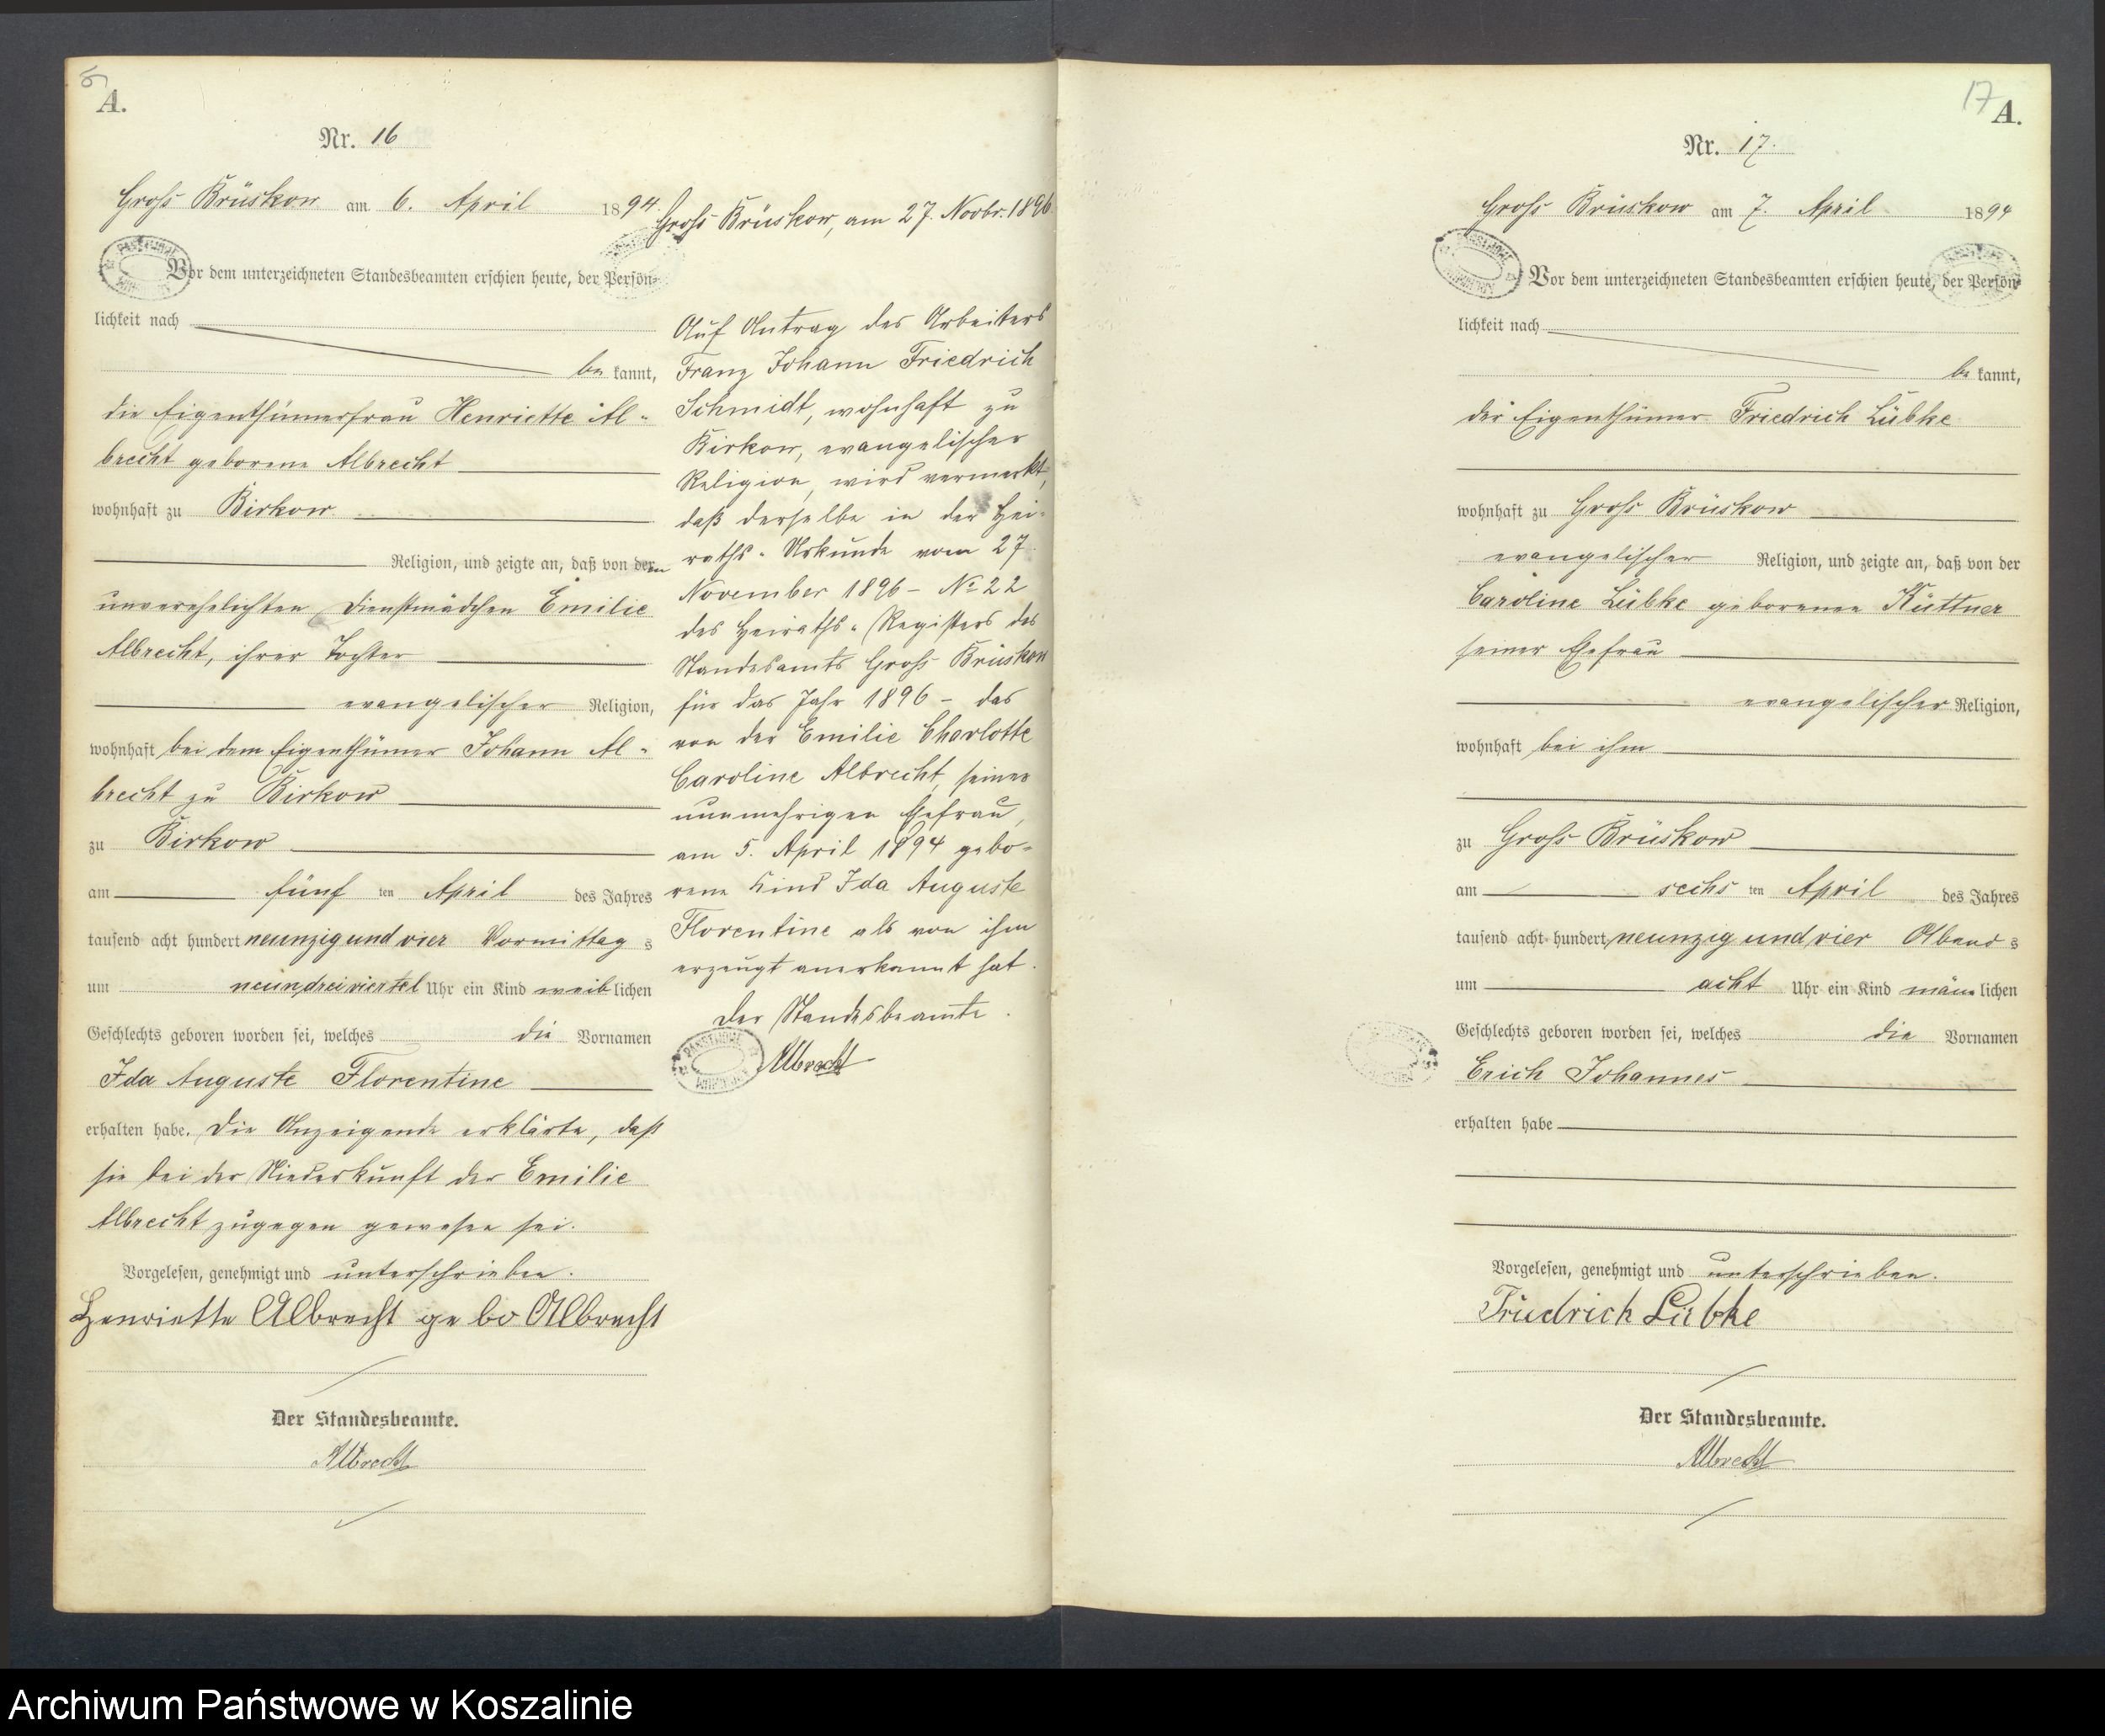 A.
Nr. 16
Groß Brüskow am 6. April 1894.
Vor dem unterzeichneten Standesbeamten erschien heute, der Persön-
lichkeit nach
be kannt,
die Eigenthümerfrau Henriette Al-
brecht geborene Albrecht
wohnhaft zu Birkow
Religion, und zeigte an, daß von der
unverehelichten Dienstmädchen Emilie
Albrecht, ihrer Tochter
evangelischer Religion,
wohnhaft bei dem Eigenthümer Johann Al-
brecht zu Birkow
zu Birkow
am fünf ten April des Jahres
tausend acht hundert neunzig und vier Vormittag s
um neundreiviertel Uhr ein Kind weib lichen
Geschlechts geboren worden sei, welches die Vornamen
Ida Auguste Florentine
erhalten habe. Die Anzeigende erklärte, daß
sie bei der Niederkunft der Emilie
Albrecht zugegen gewesen sei.
Vorgelesen, genehmigt und unterschrieben.
Henriette Albrecht gebo Albrecht
Der Standesbeamte.
Albrecht
Groß Brüskow, am 27. Novbr. 1896
Auf Antrag des Arbeiters
Franz Johann Friedrich
Schmidt, wohnhaft zu
Birkow, evangelischer
Religion, wird vermerkt,
daß derselbe in der Hei-
raths-Urkunde vom 27.
November 1896 - No 22
des Heiraths-Registers des
Standesamts Groß Brüskow
für das Jahr 1896 - das
von der Emilie Charlotte
Caroline Albrecht, seiner
nunmehrigen Ehefrau,
am 5. April 1894 gebo-
rene Kind Ida Auguste
Florentine als von ihm
erzeugt anerkannt hat.
Der Standesbeamte.
Albrecht
17
A.
Nr. 17.
Groß Brüskow am 7. April 1894
Vor dem unterzeichneten Standesbeamten erschien heute, der Persön-
lichkeit nach
be kannt,
der Eigenthümer Friedrich Lübke
wohnhaft zu Groß Brüskow
evangelischer Religion, und zeigte an, daß von der
Caroline Lübke geborenen Küttner
seiner Ehefrau
evangelischer Religion,
wohnhaft bei ihm
zu Groß Brüskow
am sechs ten April des Jahres
tausend acht hundert neunzig und vier Abend s
um acht Uhr ein Kind männ lichen
Geschlechts geboren worden sei, welches die Vornamen
Erich Johannes
erhalten habe
Vorgelesen, genehmigt und unterschrieben.
Friedrich Lübke
Der Standesbeamte.
Albrecht
Archiwum Państwowe w Koszalinie